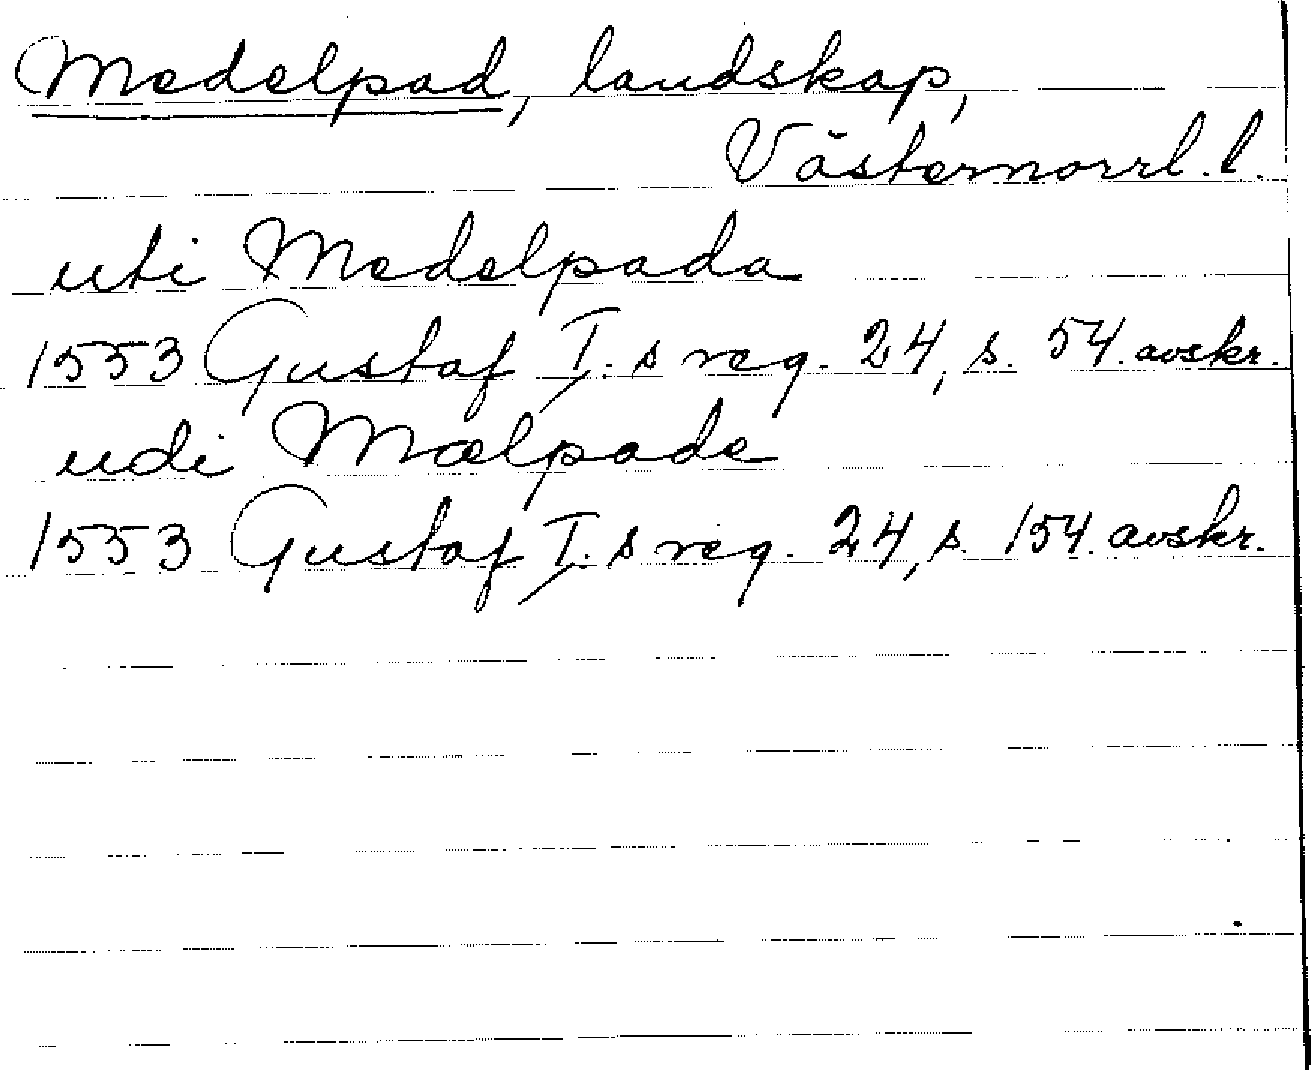 Medelpad, landskap,
Västernorrl. l.
uti Medelpada
1553 Gustaf I. s reg. 24, s. 54. avskr.
udi Mælpade
1553 Gustaf I. s reg. 24, s. 154. avskr.